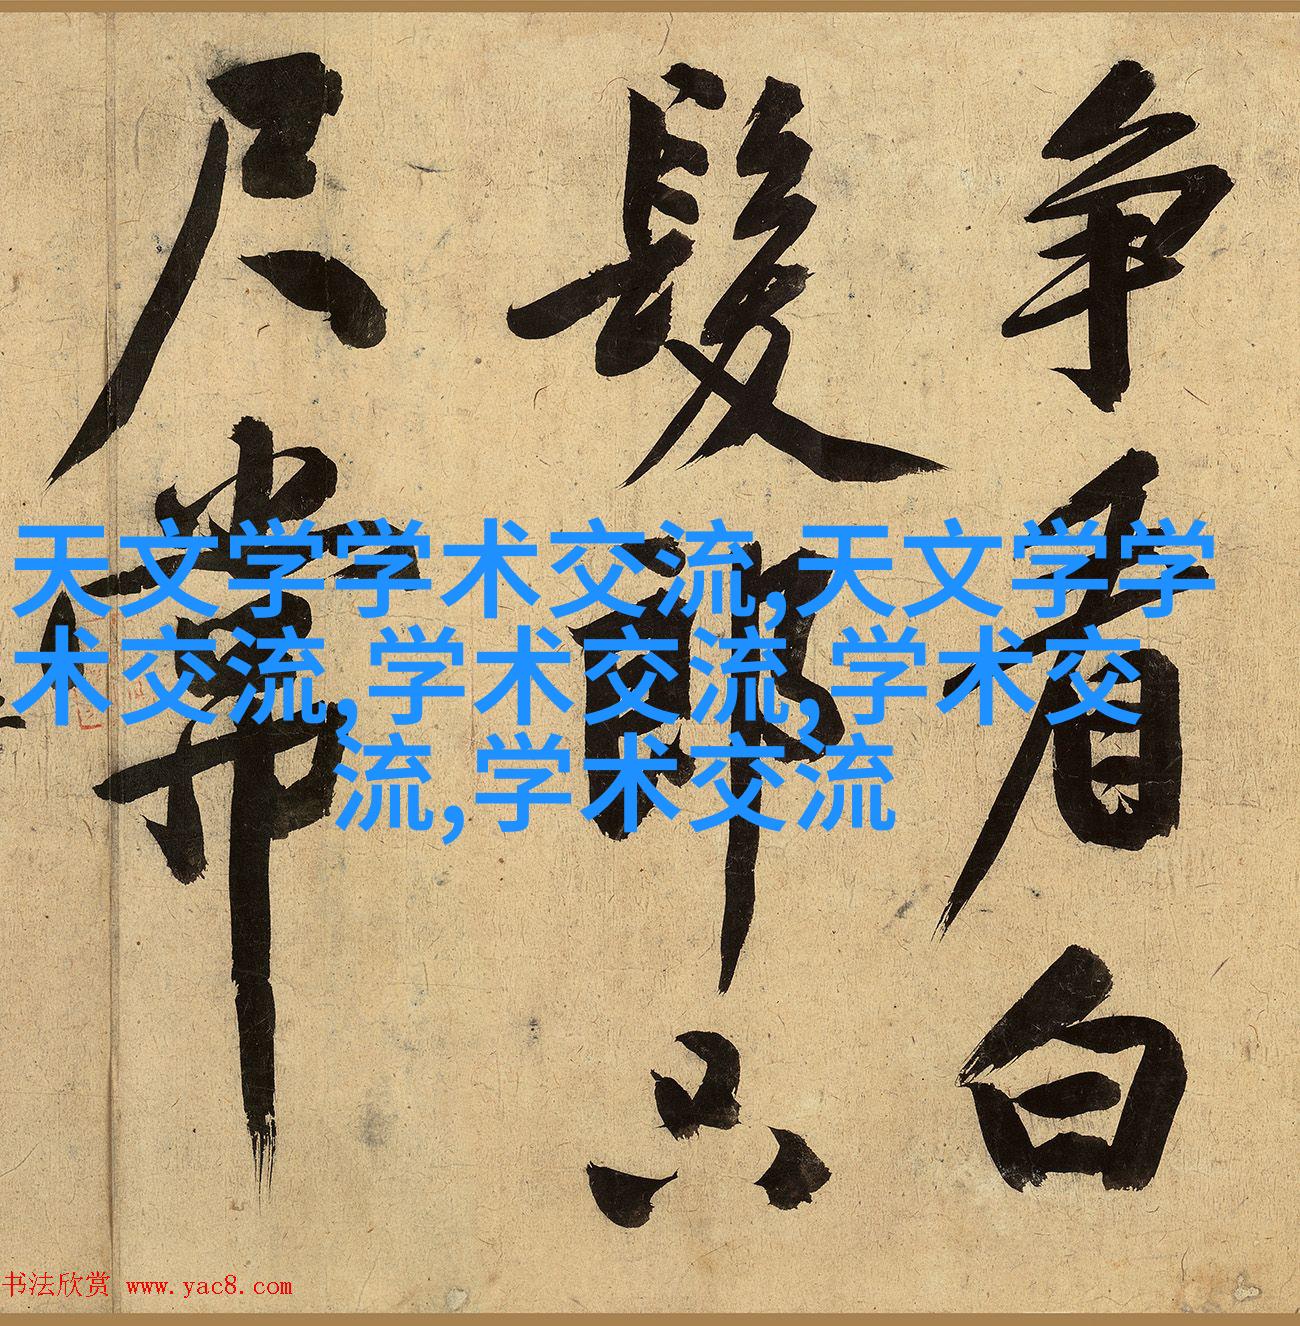 争看白
髮郎只
尺常
天文学学术交流,天文学学
术交流,学术交流,学术交
流,学术交流
书法欣赏 www.yac8.com